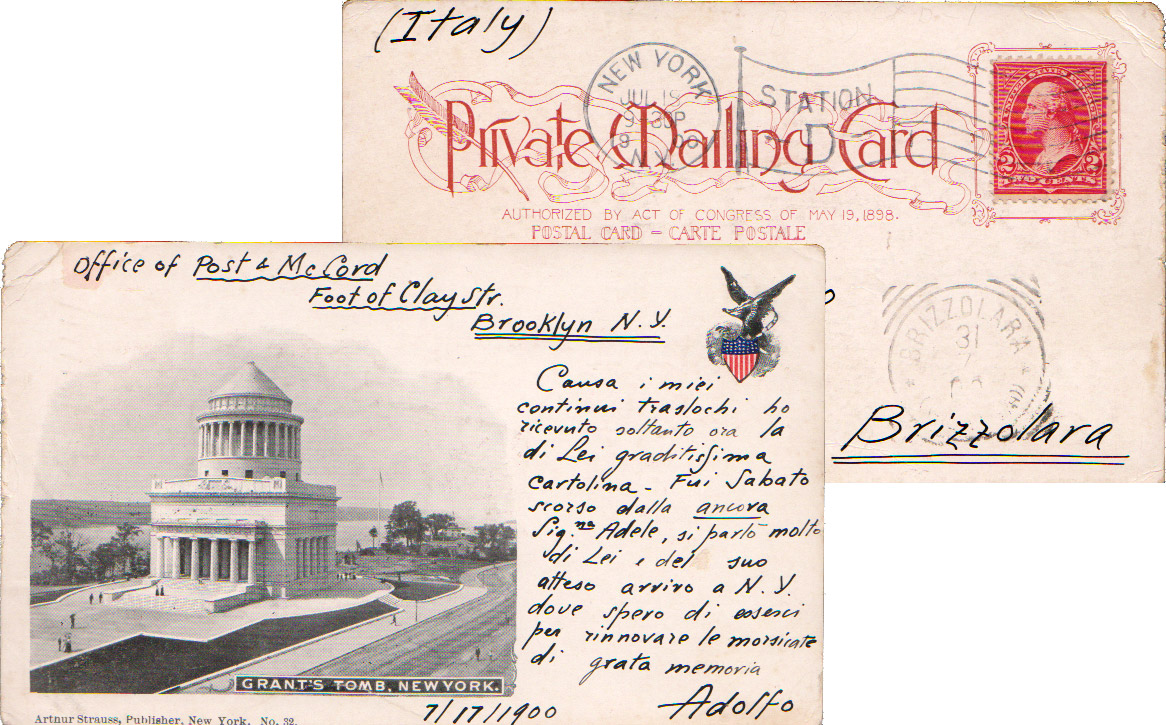 (Italy)
NEW YORK
JUL 18
STATION
D
Private Mailing Card
UNITED STATES POSTAGE
2 2
TWO CENTS
AUTHORIZED BY ACT OF CONGRESS OF MAY 19, 1898.
POSTAL CARD – CARTE POSTALE
BRIZZOLARA
31
Brizzolara
Office of Post & McCord
Foot of Clay Str.
Brooklyn N.Y.
Causa i miei
continui traslochi ho
ricevuto soltanto ora la
di Lei graditissima
cartolina – Fui Sabato
scorso dalla ancora
Sig.na Adele, si parlò molto
di Lei e del suo
atteso arrivo a N.Y.
dove spero di esserci
per rinnovare le morsicate
di grata memoria
Adolfo
7/17/1900
GRANT'S TOMB, NEW YORK.
Arthur Strauss, Publisher, New York. No. 32.